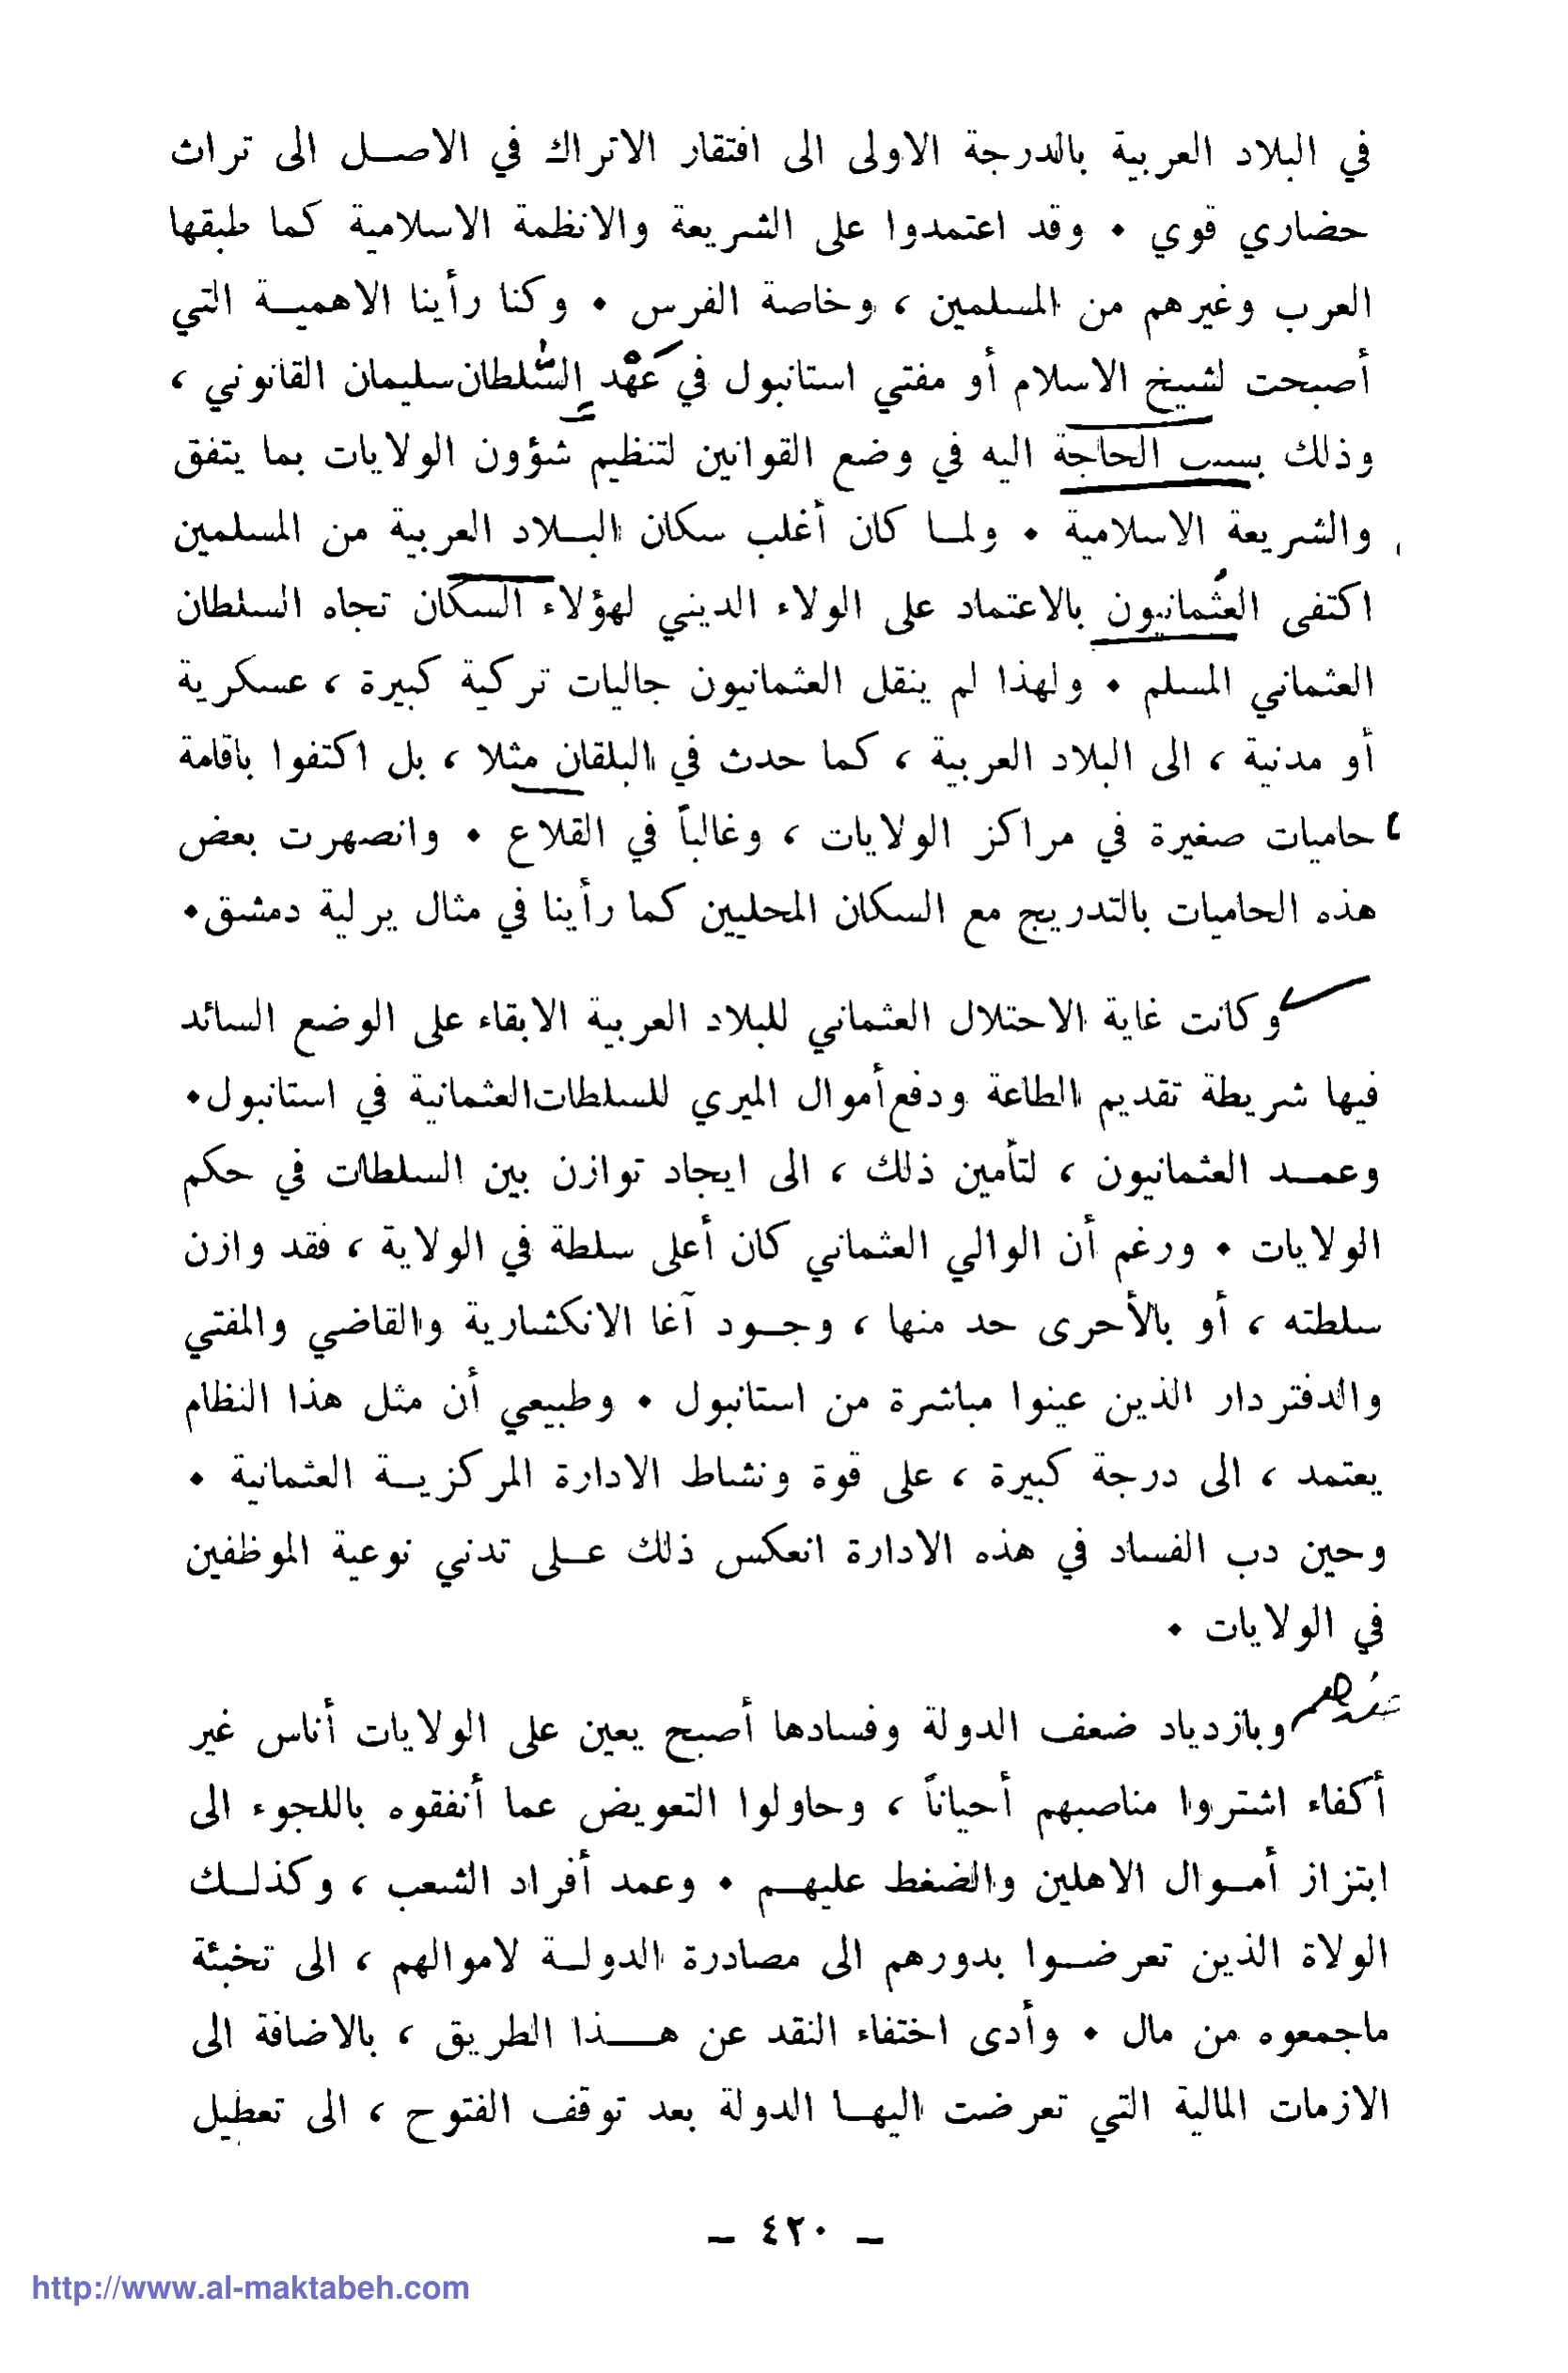 في البلاد العربية بالدرجة الاولى الى افتقار الاتراك في الاصل الى تراث
حضاري قوي . وقد اعتمدوا على الشريعة والانظمة الاسلامية كما طبقها
العرب وغيرهم من المسلمين ، وخاصة الفرس . وكنا رأينا الاهمية التي
أصبحت لشيخ الاسلام أو مفتي استانبول في عهد السلطان سليمان القانوني ،
وذلك بسبب الحاجة اليه في وضع القوانين لتنظيم شؤون الولايات بما يتفق
والشريعة الاسلامية . ولما كان أغلب سكان البلاد العربية من المسلمين
اكتفى العثمانيون بالاعتماد على الولاء الديني لهؤلاء السكان تجاه السلطان
العثماني المسلم . ولهذا لم ينقل العثمانيون جاليات تركية كبيرة ، عسكرية
أو مدنية ، الى البلاد العربية ، كما حدث في البلقان مثلا ، بل اكتفوا باقامة
حاميات صغيرة في مراكز الولايات ، وغالباً في القلاع . وانصهرت بعض
هذه الحاميات بالتدريج مع السكان المحليين كما رأينا في مثال يرلية دمشق.
وكانت غاية الاحتلال العثماني للبلاد العربية الابقاء على الوضع السائد
فيها شريطة تقديم الطاعة ودفع أموال الميري للسلطات العثمانية في استانبول.
وعمد العثمانيون ، لتأمين ذلك ، الى ايجاد توازن بين السلطات في حكم
الولايات . ورغم أن الوالي العثماني كان أعلى سلطة في الولاية ، فقد وازن
سلطته ، أو بالأحرى حد منها ، وجود آغا الانكشارية والقاضي والمفتي
والدفتردار الذين عينوا مباشرة من استانبول . وطبيعي أن مثل هذا النظام
يعتمد ، الى درجة كبيرة ، على قوة ونشاط الادارة المركزية العثمانية .
وحين دب الفساد في هذه الادارة انعكس ذلك على تدني نوعية الموظفين
في الولايات .
وبازدياد ضعف الدولة وفسادها أصبح يعين على الولايات أناس غير
أكفاء اشتروا مناصبهم أحياناً ، وحاولوا التعويض عما أنفقوه باللجوء الى
ابتزاز أموال الاهلين والضغط عليهم . وعمد أفراد الشعب ، وكذلك
الولاة الذين تعرضوا بدورهم الى مصادرة الدولة لاموالهم ، الى تخبئة
ماجمعوه من مال . وأدى اختفاء النقد عن هذا الطريق ، بالاضافة الى
الازمات المالية التي تعرضت اليها الدولة بعد توقف الفتوح ، الى تعطيل
– ٤٢٠ –
http://www.al-maktabeh.com